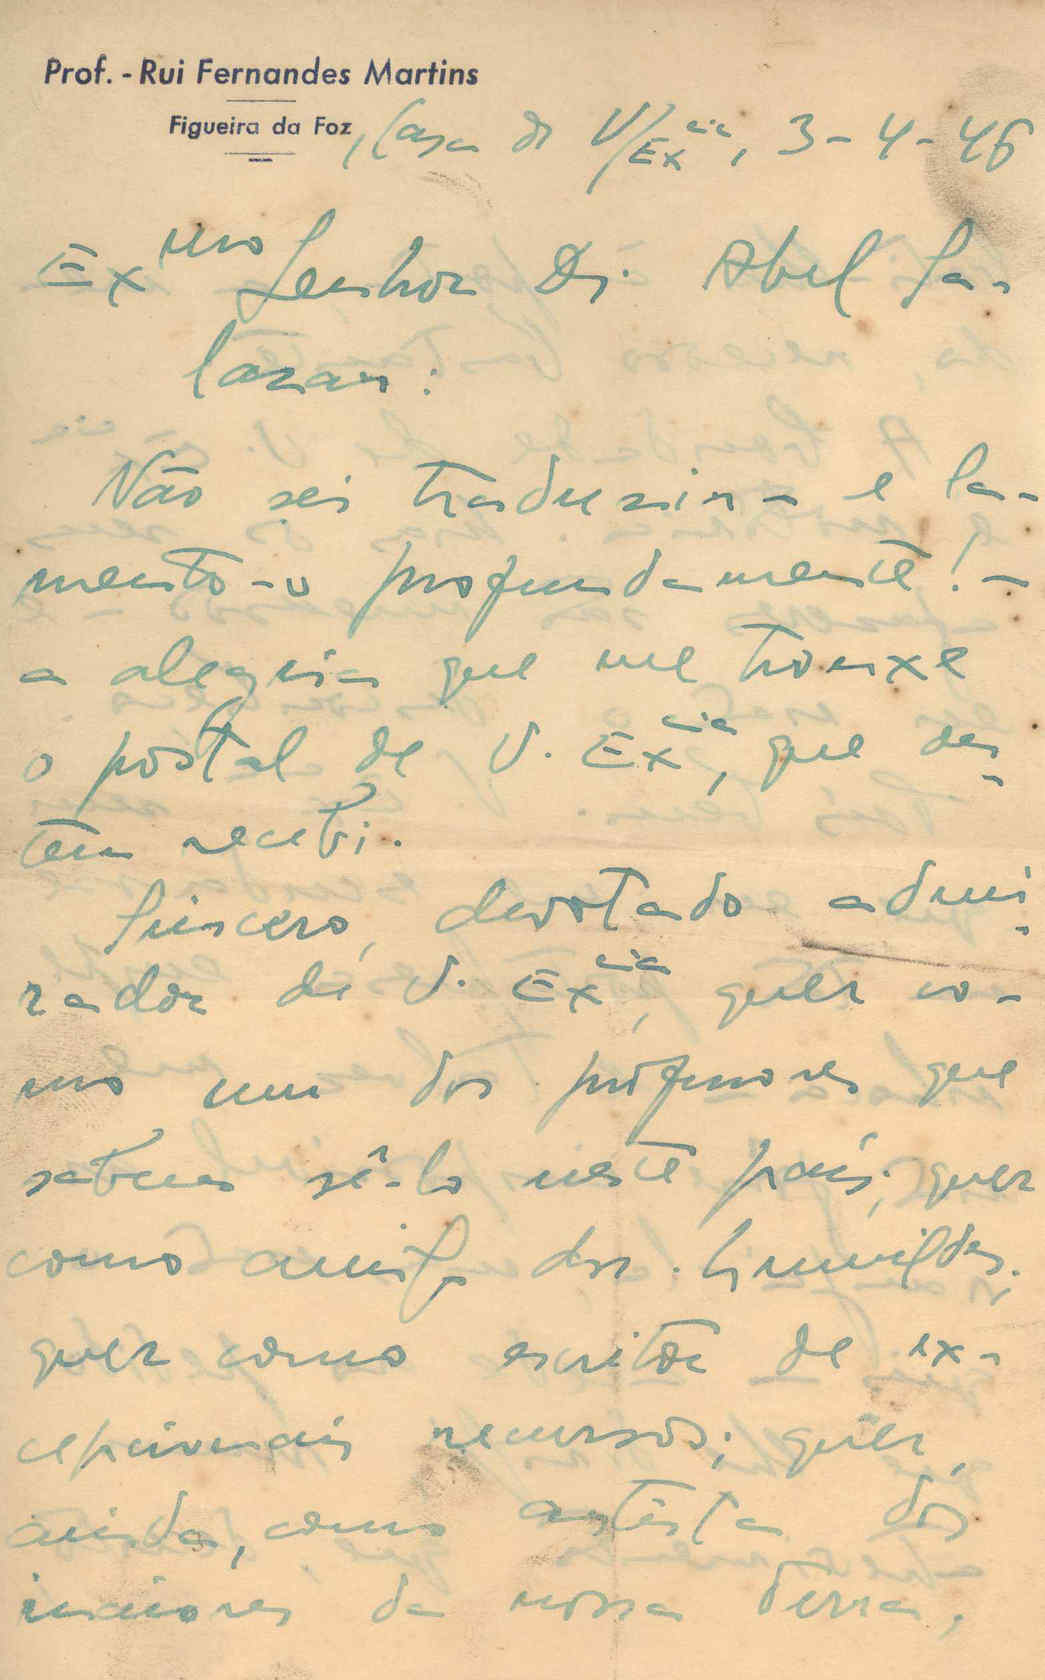 Prof. - Rui Fernandes Martins
Figueira da Foz, Casa de V/Ex.cia, 3-4-46
Exmo Senhor Dr. Abel Sa-
lazar:
Não sei traduzir - e la-
mento-o profundamente! -
a alegria que me trouxe
o postal de V. Excia, que on-
tem recebi.
Sincero, devotado admi-
rador de V. Excia, quer co-
mo um dos professores que
sabem sê-lo neste país; quer
como amigo dos humildes;
quer como escritor de ex-
cepcionais recursos; quer,
ainda, como artista dos
maiores da nossa terra,